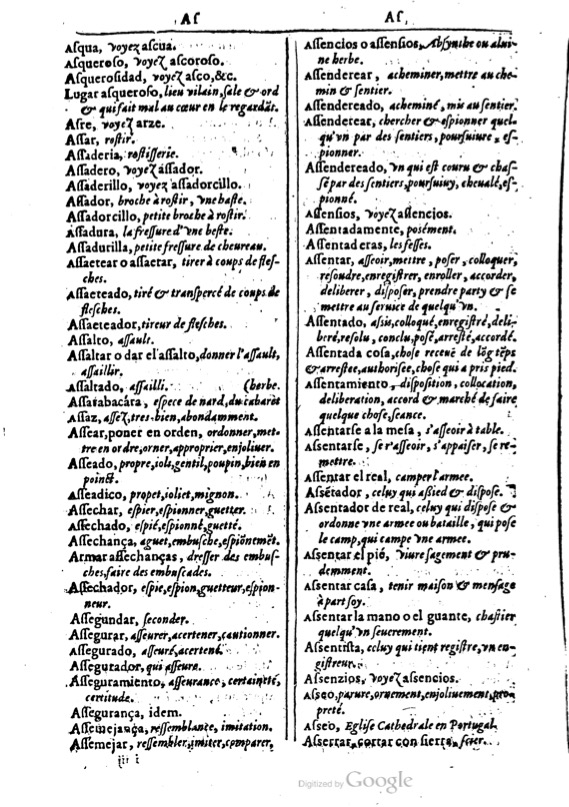 As
Asqua, voyez ascua.
Asqueroso, voyez ascoroso.
Asquerosidad, voyez asco, &c.
Lugar asqueroso, lieu vilain, sale & ord
& qui fait mal au cœur en le regardãt.
Asre, voyez arze.
Assar, rostir.
Assaderia, rostisserie.
Assadero, voyez assador.
Assaderillo, voyez assadorcillo.
Assador, broche à rostir, vne haste.
Assadorcillo, petite broche à rostir.
Assadura, la fressure d'vne beste.
Assadurilla, petite fressure de cheureau.
Assaetear o assaetar, tirer à coups de fles-
ches.
Assaeteado, tiré & transpercé de coups de
flesches.
Assaeteador, tireur de flesches.
Assalto, assault.
Assaltar o dar el assalto, donner l'assault,
assaillir.
Assaltado, assailli. (herbe.
Assarabacára, espece de nard, du cabaret
Assaz, assez, tres-bien, abondamment.
Assear, poner en orden, ordonner, met-
tre en ordre, orner, approprier, enjoliuer.
Asseado, propre, ioly, gentil, poupin, bien en
poinct.
Asseadico, propet, ioliet, mignon.
Assechar, espier, espionner, guetter.
Assechado, espié, espionné, guetté.
Assechança, aguet, embusche, espiõnemẽt.
Armar assechanças, dresser des embus-
ches, faire des embuscades.
Assechador, espie, espion, guetteur, espion-
neur.
Assegundar, seconder.
Assegurar, asseurer, acertener, cautionner.
Assegurado, asseuré, acertené.
Assegurador, qui asseure.
Asseguramiento, asseurance, certaineté,
certitude.
Assegurança, idem.
Assemejança, ressemblance, imitation.
Assemejar, ressembler, imiter, comparer,
iii i
As
Assencios o assensios, Absynthe ou alui-
ne herbe.
Assenderear, acheminer, mettre au che-
min & sentier.
Assendereado, acheminé, mis au sentier.
Assenderear, chercher & espionner quel-
qu'vn par des sentiers, poursuiure, es-
pionner.
Assendereado, vn qui est couru & chas-
sé par des sentiers, poursuiuy, cheualé, es-
pionné.
Assensios, voyez assencios.
Assentadamente, posément.
Assentaderas, les fesses.
Assentar, asseoir, mettre, poser, colloquer,
resoudre, enregistrer, enroller, accorder,
deliberer, disposer, prendre party & se
mettre au seruice de quelqu'vn.
Assentado, assis, colloqué, enregistré, deli-
beré, resolu, conclu, posé, arresté, accordé.
Assentada cosa, chose receuë de lõg tẽps
& arrestee, authorisee, chose qui a pris pied.
Assentamiento, disposition, collocation,
deliberation, accord & marché de faire
quelque chose, seance.
Assentarse a la mesa, s'asseoir à table.
Assentarse, se r'asseoir, s'appaiser, se re-
mettre.
Assentar el real, camper l'armee.
Assẽtador, celuy qui assied & dispose.
Assentador de real, celuy qui dispose &
ordonne vne armee ou bataille, qui pose
le camp, qui campe vne armee.
Assentar el pié, viure sagement & pru-
demment.
Assentar casa, tenir maison & mesnage
à part soy.
Assentar la mano o el guante, chastier
quelqu'vn seuerement.
Assentista, celuy qui tient registre, vn en-
gistreur.
Assenzios, voyez assencios.
Asseo, parure, ornement, enjoliuement, pro-
preté.
Asseo, Eglise Cathedrale en Portugal.
Asserrar, cortar con sierra, scier.
Digitized by Google